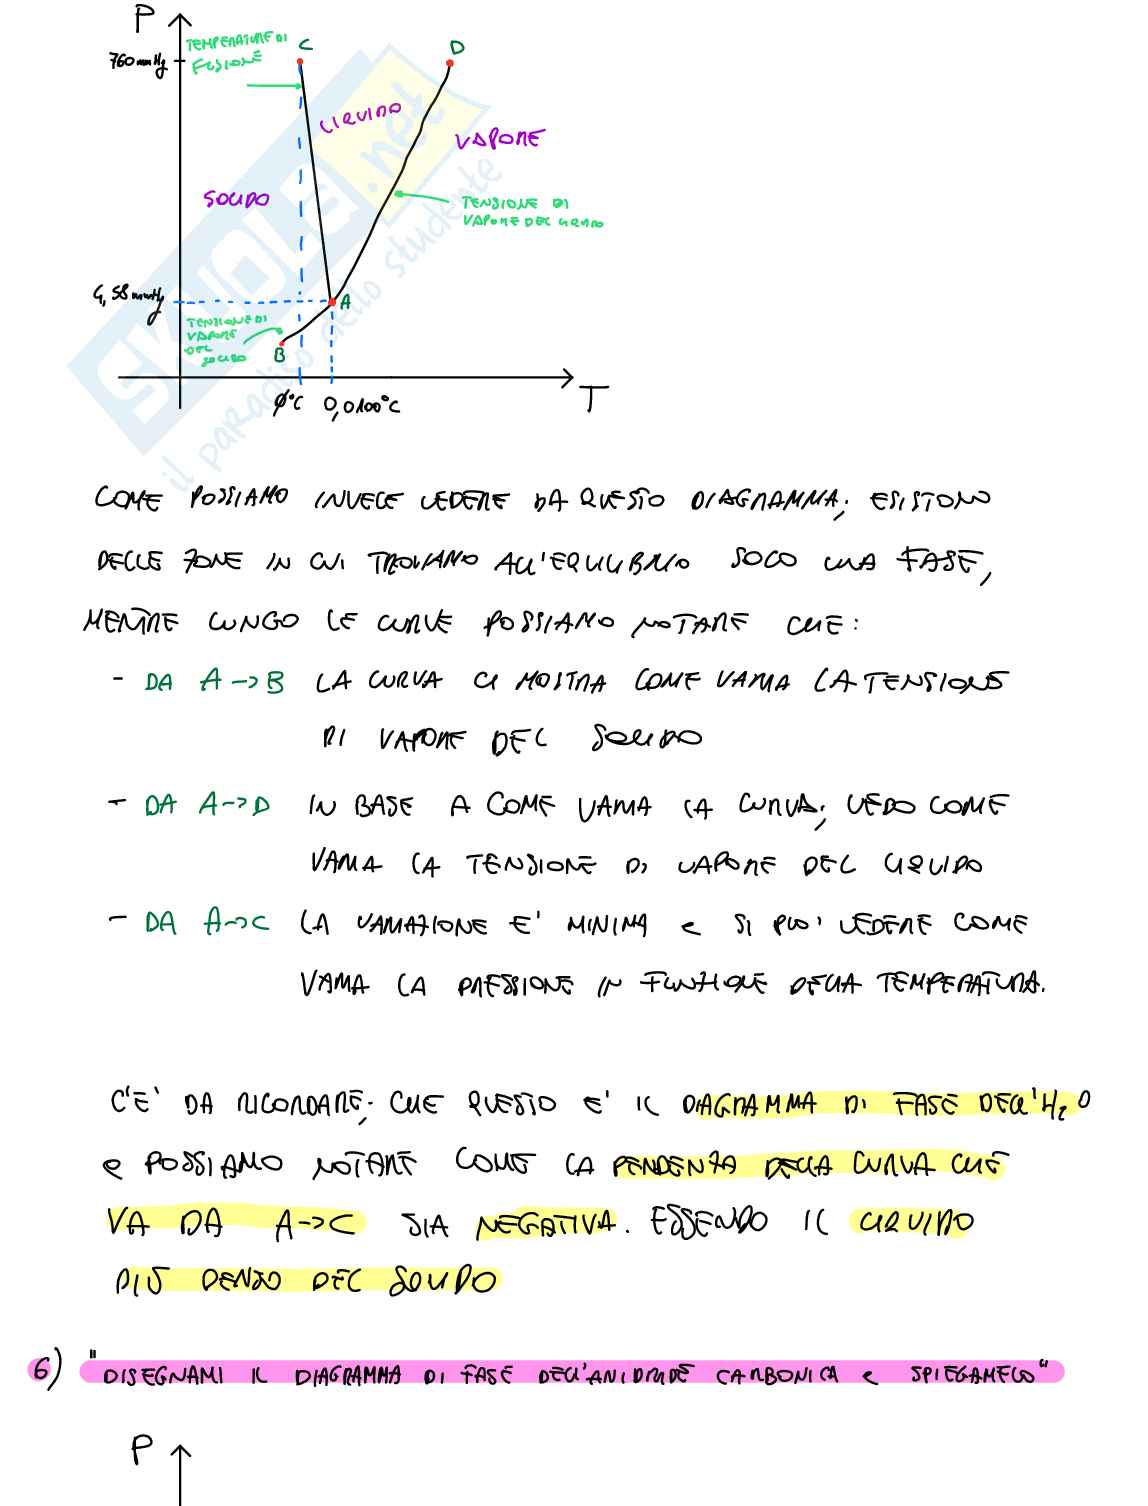 P
760 mmHg
TEMPERATURE DI
FUSIONE
C
D
LIQUIDO
VAPORE
SOLIDO
TENSIONE DI
VAPORE DEL LIQUIDO
4,58 mmHg
A
TENSIONE DI
VAPORE
DEL
SOLIDO
B
0°C
0,0100°C
T
SKUOLA.net
il paradiso dello studente
COME POSSIAMO INVECE VEDERE DA QUESTO DIAGRAMMA, ESISTONO
DELLE ZONE IN CUI TROVIAMO ALL'EQUILIBRIO SOLO UNA FASE,
MENTRE LUNGO LE CURVE POSSIAMO NOTARE CHE:
- DA A->B LA CURVA CI MOSTRA COME VARIA LA TENSIONE
DI VAPORE DEL SOLIDO
- DA A->D IN BASE A COME VARIA LA CURVA, VEDO COME
VARIA LA TENSIONE DI VAPORE DEL LIQUIDO
- DA A->C LA VARIAZIONE E' MINIMA e SI PUO' VEDERE COME
VARIA LA PRESSIONE IN FUNZIONE DELLA TEMPERATURA.
C'E' DA RICORDARE, CHE QUESTO E' IL DIAGRAMMA DI FASE DELL'H₂O
e POSSIAMO NOTARE COME LA PENDENZA DELLA CURVA CHE
VA DA A->C SIA NEGATIVA. ESSENDO IL LIQUIDO
PIÙ DENSO DEL SOLIDO
6) "DISEGNAMI IL DIAGRAMMA DI FASE DELL'ANIDRIDE CARBONICA e SPIEGAMELO"
P